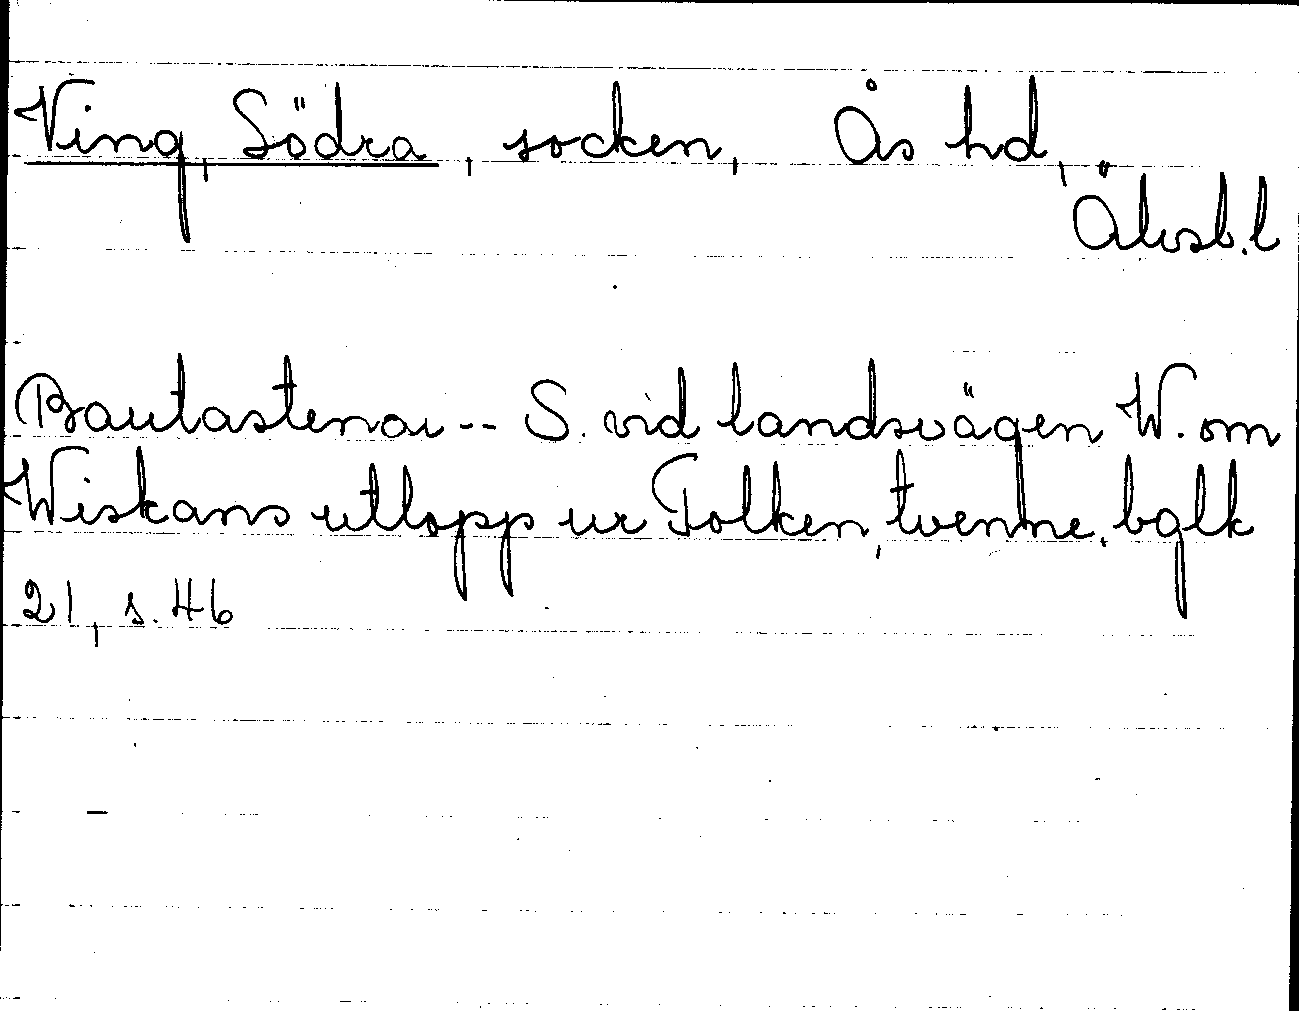 Ving, Södra, socken, Ås hd,
Älvsb.l
Bautastenar -- S. vid landsvägen W. om
Wiskans utlopp ur Tolken, tvenne. bglk
21, s. 46